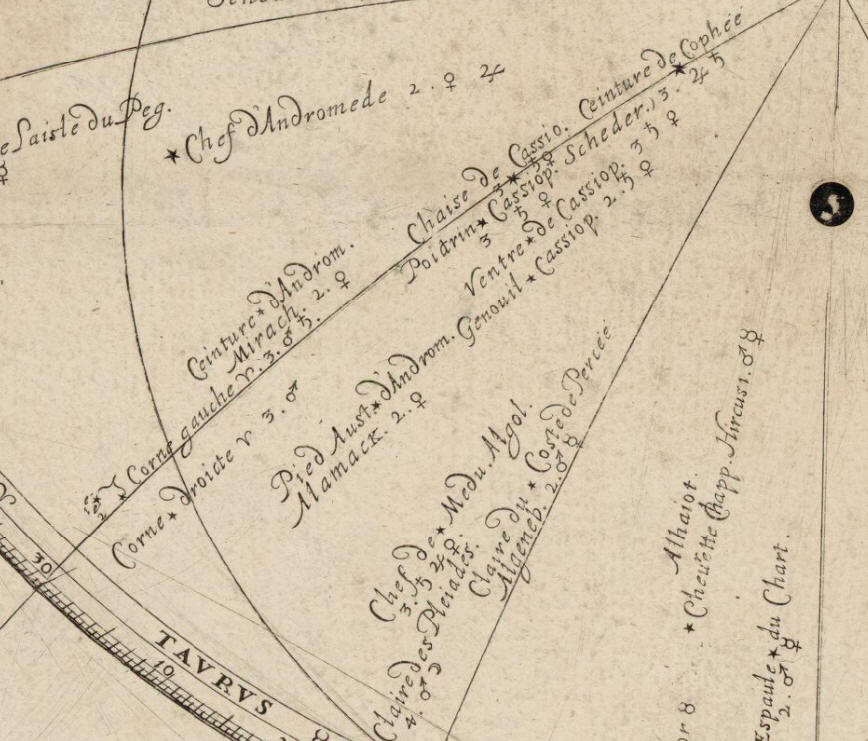 Laisle du Peg.
Chef d'Andromede 2. ♀ ♃
Ceinture de Cophée
3. ♃ ♄
Chaise de Cassio.
3. ♄ ♀
Poictrin★Cassiop. Scheder.
3 ♄ ♀
Ventre★de Cassiop. 3 ♄ ♀
Genouil★Cassiop. 2. ♄ ♀
Ceinture★d'Androm.
Mirach. 2. ♀
Corne gauche ♈. 3. ♂ ♄.
Corne★droicte ♈ 3. ♂
Pied Aust★d'Androm.
Alamack. 2. ♀
Chef de★Medu Algol.
3. ♄ ♃ ♀.
Claire du★Coste de Percée
Algeneb. 2. ♂ ☿
Claire des Pleiades.
4. ♂ ☽
Alhaiot.
★Cheurette Chapp. Hircus 1. ♂ ☿
Espaule★du Chart.
2. ♂ ☿
30
TAVRVS
10